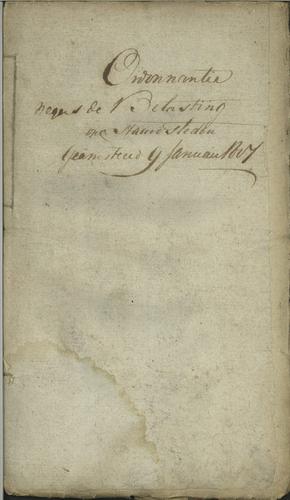 Ordonnantie
wegens de Belasting
op Haardsteden
Gearresteerd 9 Januari 1807